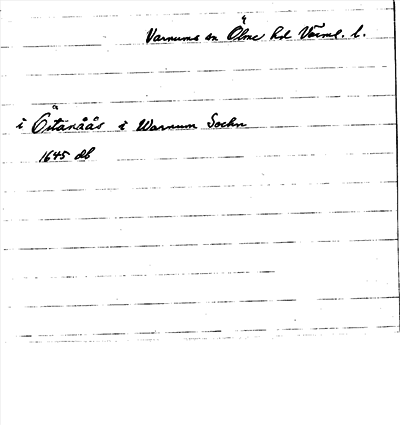 Varnums sn Ölme hd Värml. l.
i Östanåås i Warnum Sochn
1645 db